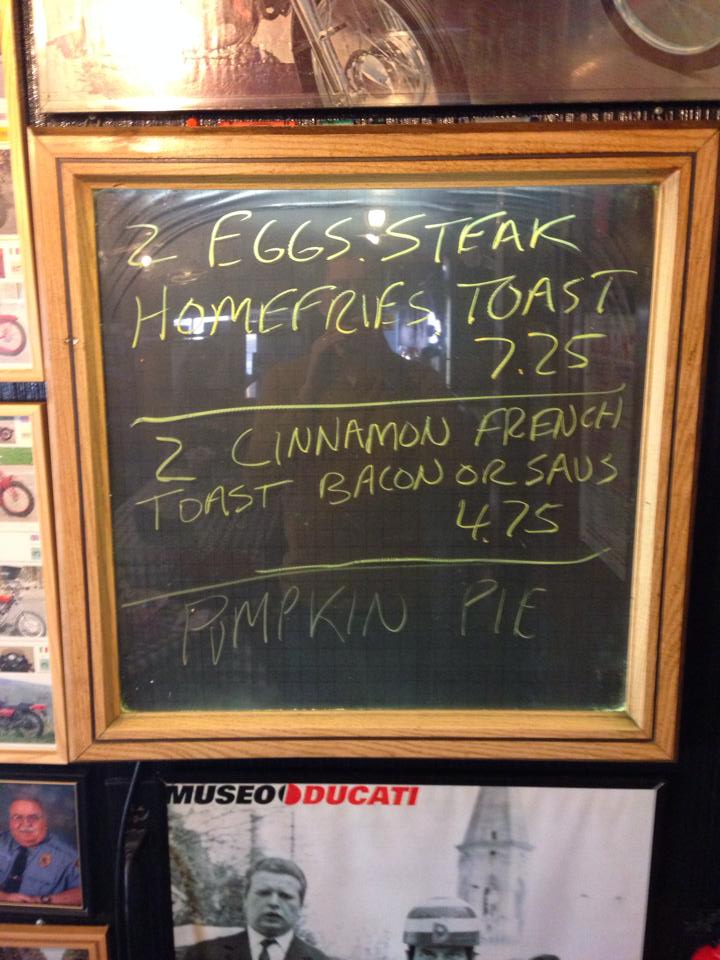 2 EGGS. STEAK
HOMEFRIES TOAST
7.25
2 CINNAMON FRENCH
TOAST BACON OR SAUS
4.75
PUMPKIN PIE
MUSEO DUCATI